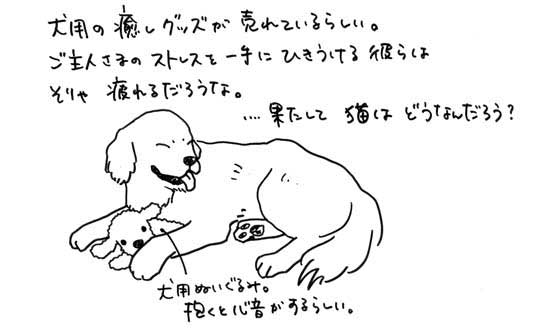 犬用の癒しグッズが売れているらしい。
ご主人さまのストレスを一手にひきうける彼らは
そりゃ疲れるだろうな。
....果たして猫はどうなんだろう?
犬用ぬいぐるみ。
抱くと心音がするらしい。